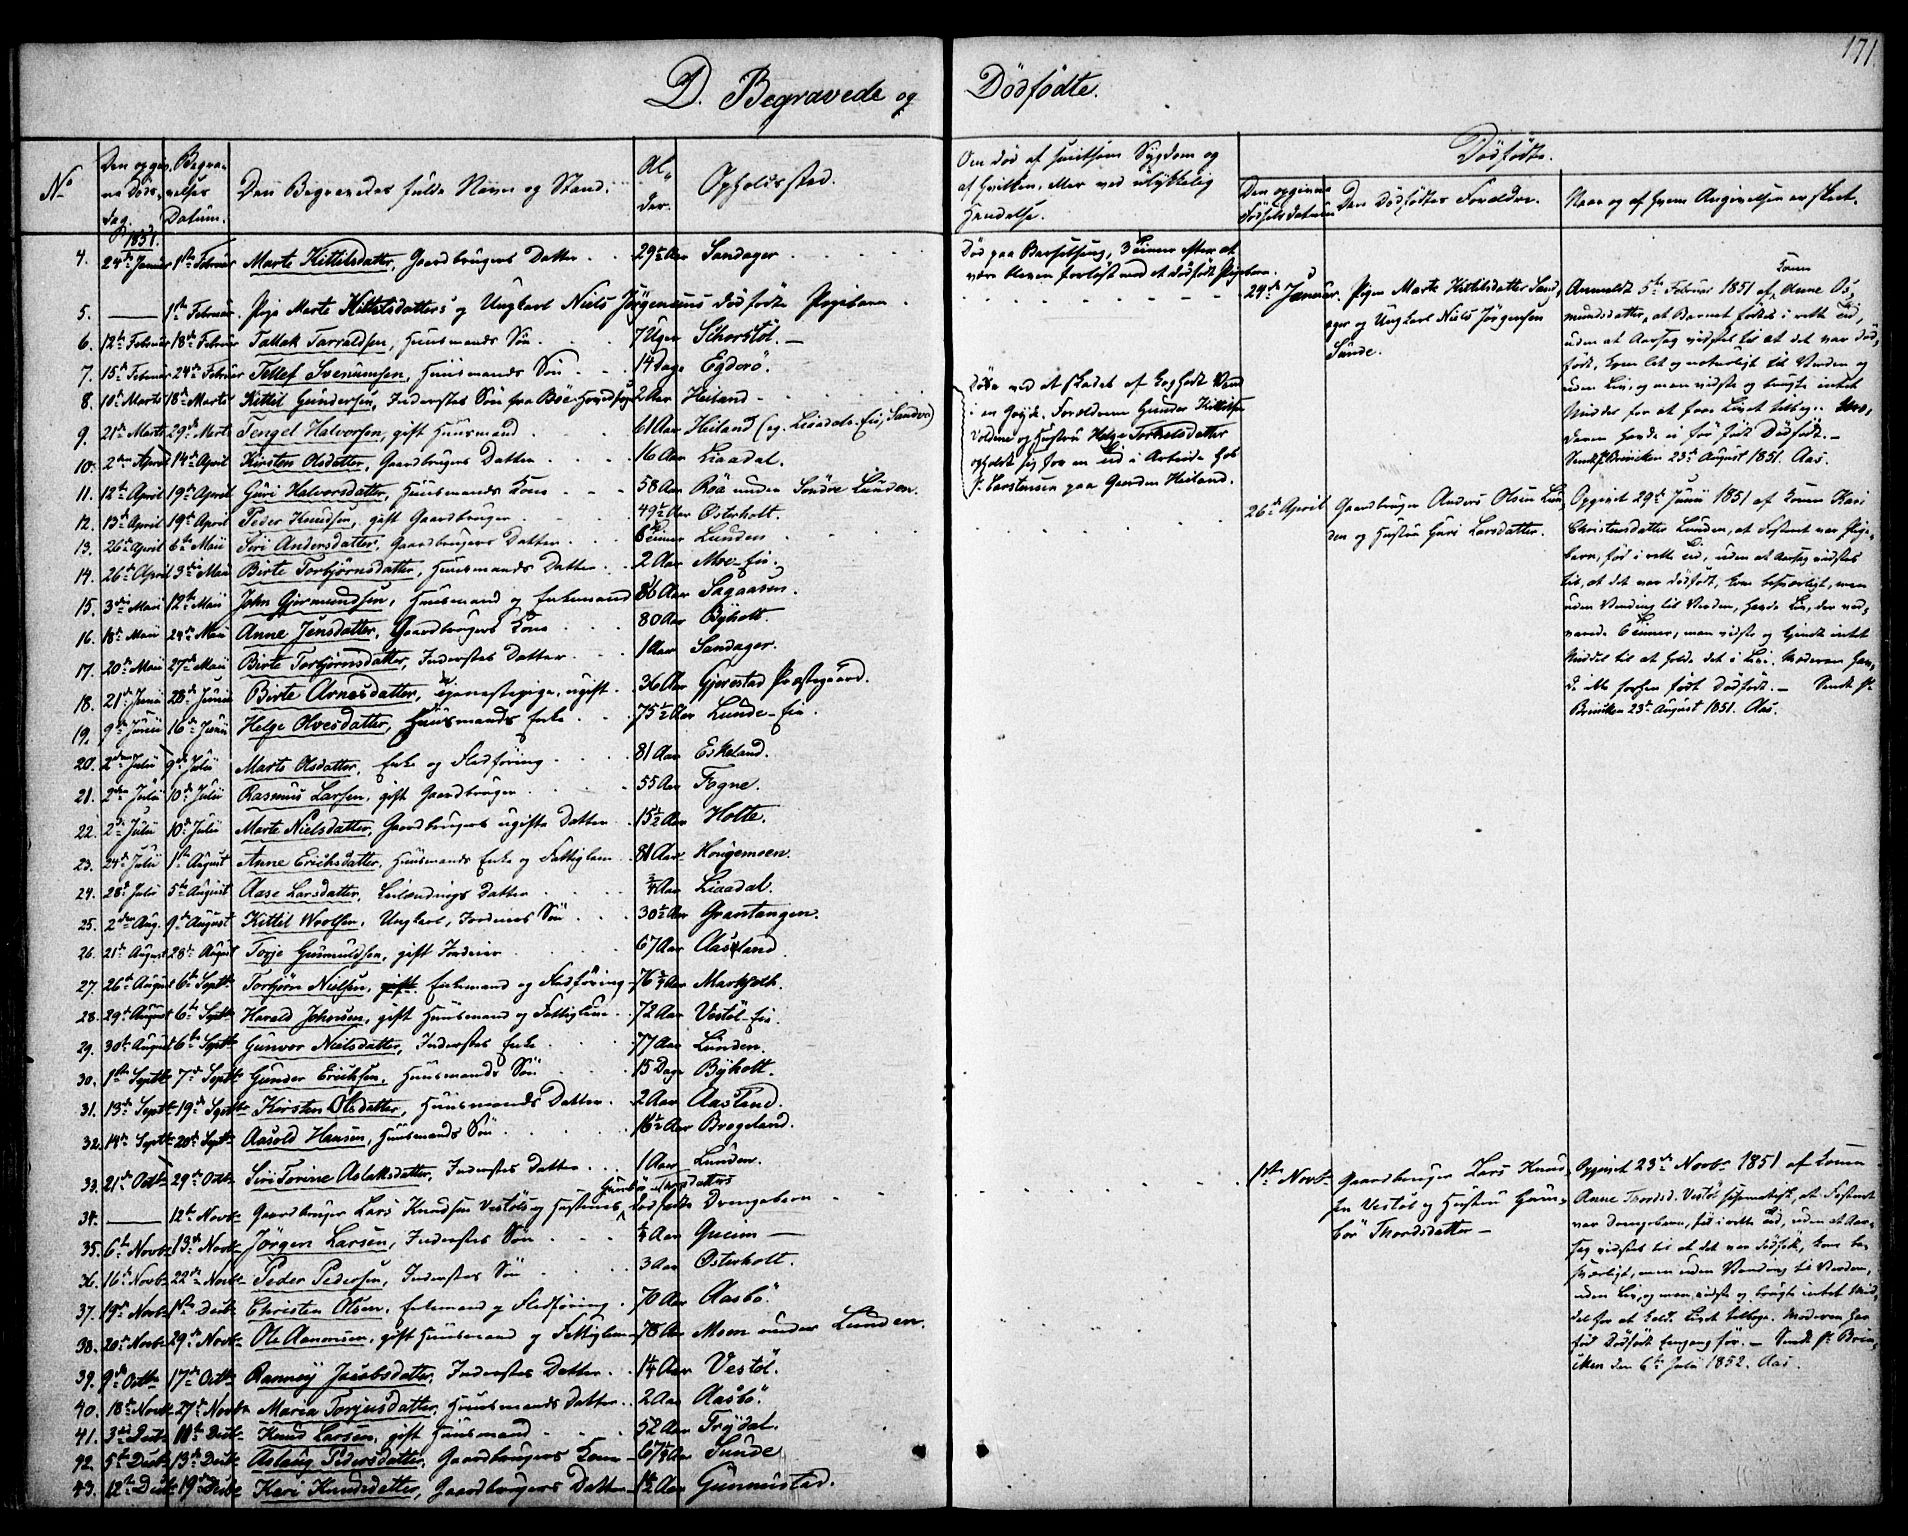 171.
D. Begravede og Dødfødte.
No
Den opgivne Døds-dag.
Begravelses Datum.
Den Begravedes fulde Navn og Stand.
Alder.
Opholdssted.
Om død af smitsom Sygdom og af hvilken, eller ved ulykkelig Hændelse.
Dødfødte.
Den opgivne Fødselsdatum
Den Dødfødtes Forældre.
Naar og af hvem Angivelsen er skeet.
1851.
4. 24de Januar 1ste Februar Marte Kittilsdatter, Gaardbrugers Datter 29½ Aar Sandager
Død paa Barselseng, 3 Timer efter at være bleven forløst med et dødfødt Pigebarn.
5. — 1ste Februar Pige Marte Kittilsdatters og Ungkarl Niels Jörgensens dödfödte Pigebarn
6. 12te Februar 18de Februar Tallak Tarraldsen, Huusmands Sön 7 Uger Schorstöl.
7. 15de Februar 24de Februar Tellef Svenumsen, Huusmands Sön 14 Dage Egderö.
8. 10de Marts 18de Marts Kittil Gundersen, Inderstes Sön fra Böe 2 Aar Heiland
9. 21de Marts 29de Marts Tengel Halvorsen, gift Huusmand 61 Aar Heiland
10. 2den April 14de April Kirsten Olsdatter, Gaardbrugers Datter 16 Aar Liaadal.
11. 12te April 19de April Guri Halvorsdatter, Huusmands Kone 58 Aar Röd under Söndre Lunden.
12. 13de April 19de April Peder Knudsen, gift Gaardbruger 49½ Aar Österholt.
13. 26de April 6te Maii Siri Andersdatter, Gaardbrugers Datter 6 Timer Lunden
14. 26de April 3die Maii Birte Torbjörnsdatter, Huusmands Datter 2 Aar Moe-Eie.
15. 3die Maii 12te Maii John Gjermundsen, Huusmand og Enkemand 86 Aar Sagaasen.
16. 18de Maii 24de Maii Anne Jensdatter, Gaardbrugers Kone 80 Aar Byholt.
17. 20de Maii 27de Maii Birte Torbjörnsdatter, Inderstes Datter 1 Aar Sandager.
18. 21de Junii 28de Junii Birte Arnesdatter, Tjenestepige, ugift 36 Aar Gjerestad Præstegaard.
19. 9de Junii 16de Junii Helge Olvesdatter, Huusmands Enke 75½ Aar Lunde-Eie.
20. 2den Julii 9de Julii Marte Olsdatter, Enke og Fledföring 81 Aar Eskeland.
21. 2den Julii 10de Julii Rasmus Larsen, gift Gaardbruger 55 Aar Fogne.
22. 2den Julii 10de Julii Marte Nielsdatter, Gaardbrugers ugifte Datter 15½ Aar Holte.
23. 24de Julii 1ste August Anne Erichsdatter, Huusmands Enke og Fattiglem 81 Aar Hougemoen.
24. 28de Julii 5te August Aase Larsdatter, Leilændings Datter ¾ Aar Liaadal.
25. 2den Aug. 9de August Kittil Wrolsen, Ungkarl, Jordeiers Sön 30½ Aar Grantangen.
26. 21de August 28de August Torje Gunnuldsen, gift Jordeier 67 Aar Aasland
27. 26de August 6te Septbr Torbjörn Nielsen, gift Enkemand og Fledföring 76¾ Aar
28. 29de August 6te Septbr Harald Johnsen, gift Huusmand og Fattiglem 72 Aar Vestöl-Eie.
29. 30te August 6te Septbr Gunvor Nielsdatter, Inderstes Enke 77 Aar Lunden.
30. 1ste Septbr 7de Septbr Gunder Erichsen, Huusmands Sön 15 Dage Byholt.
31. 13de Septbr 19de Septbr Kirsten Olsdatter, Huusmands Datter 2 Aar Aasland.
32. 14de Septbr 20de Septbr Aasold Hansen, Huusmands Sön 16½ Aar Brogeland.
33. 21de Octbr 29de Octbr Siri Torine Aslaksdatter, Inderstes Datter 1 Aar Lunden.
34. — 12te Novbr Gaardbruger Lars Knudsen Vestöls og Hustrues Gunbör Thordsdatters dödfödte Drengebarn
35. 6te Novbr 13de Novbr Jörgen Larsen, Inderstes Sön ½ Aar Greim
36. 16de Novbr 22de Novbr Peder Pedersen, Inderstes Sön 3 Aar Österholt.
37. 19de Novbr 1ste Decbr Christen Olsen, Enkemand og Fledföring 70 Aar Aasbö.
38. 20de Novbr 29de Novbr Ole Aanonsen, gift Huusmand og Fattiglem 78 Aar Moen under Lunden.
39. 9de Octbr 17de Octbr Rannei Jacobsdatter, Inderstes Datter 1¼ Aar Vestöl.
40. 18de Novbr 27de Novbr Maria Torjusdatter, Huusmands Datter 2 Aar Aasbö.
41. 3die Decbr 11te Decbr Knud Larsen, gift Huusmand 52 Aar Frydal.
42. 5te Decbr 13de Decbr Aslaug Pedersdatter, Gaardbrugers Kone 67¼ Aar Sunde
43. 12te Decbr 19de Decbr Kari Knudsdatter, Gaardbrugers Datter 1½ Aar Gunnestad.
Døde ved at skades af koghedt Vand
i en Gryde. Forældrene Gunder Kittilsen
Voldene og Hustru Helge Torkelsdatter
opholdt sig for en Tid i Arbeide hos
P. Carstensen paa Gaarden Heiland.
24de Januar Pigen Marte Kittilsdatter Sand-
ager og Ungkarl Niels Jörgensen
Sunde.
Anmeldt 5te Februar 1851 af Konen Anne Os-
mundsdatter, at Barnet fødtes i rette Tid,
uden at Aarsag vidstes til at det var død-
født, kom let og naturligt til Verden og
uden Liv, og man vidste og brugte intet
Middel for at faae Livet tilbage. Mo-
deren havde ei før født Dødfødt.
Sendt P. Brinchen 23de August 1851. Aas.
26de April Gaardbruger Anders Olsen Lun-
den og Hustru Guri Larsdatter.
Opgivet 29de Junii 1851 af Konen Kari
Christensdatter Lunden, at Fosteret var Pige-
barn, fød i rette Tid, uden at Aarsag vidstes
til, at det var dødfødt, kom besværligt, men
uden Vending til Verden, havde Liv, der ved-
varede 6 Timer, man vidste og kjendte intet
Middel til at holde det i Live. Moderen hav-
de ikke forhen født Dødfødt. — Sendt P.
Brinchen 23de August 1851. Aas.
1ste Novbr Gaardbruger Lars Knud-
sen Vestöl og Hustru Gun-
bör Thordsdatter
Opgivet 23de Novbr 1851 af Konen
Anne Thordsd. Vestöl, at Fosteret
var Drengebarn, fød i rette Tid, uden at Aar-
sag vidstes til at det var dødfødt, kom be-
sværligt, men uden Vending til Verden,
uden Liv, og man vidste og brugte intet Mid-
del for at holde Livet tilbage. Moderen har
fød Dødfødt engang før. — Sendt P. Brin-
chen den 6te Julii 1852. Aas.